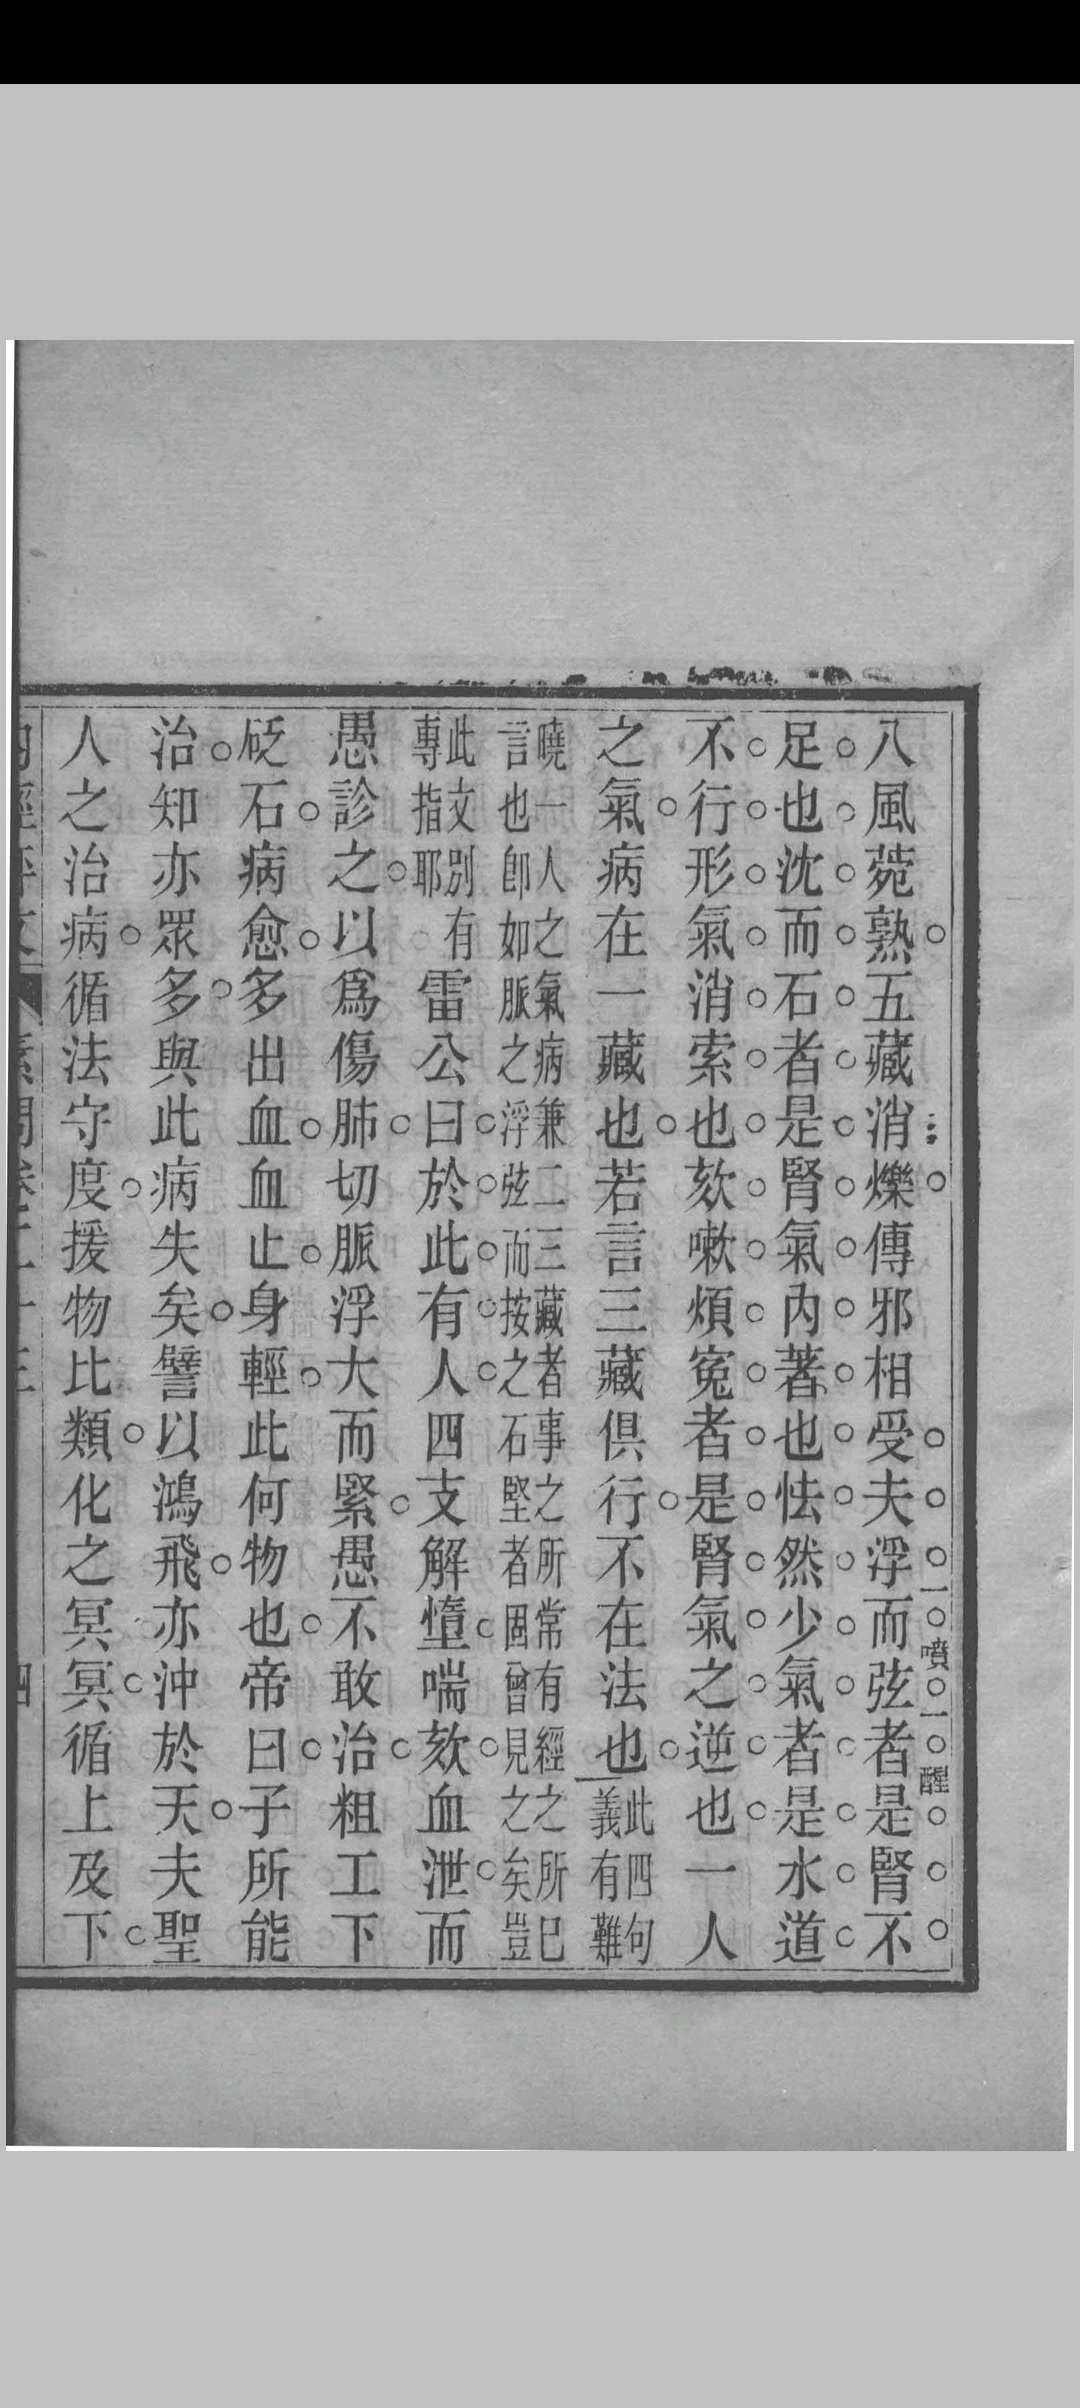 八風菀熟五藏消爍傳邪相受夫浮而弦者是腎不
一噴一醒
足也沈而石者是腎氣內著也怯然少氣者是水道
不行形氣消索也欬嗽煩寃者是腎氣之逆也一人
之氣病在一藏也若言三藏俱行不在法也此四句
義有難
曉一人之氣病兼二三藏者事之所常有經之所已
言也卽如脈之浮弦而按之石堅者固曾見之矣豈
此文別有
專指耶
雷公曰於此有人四支解墮喘欬血泄而
愚診之以爲傷肺切脈浮大而緊愚不敢治粗工下
砭石病愈多出血血止身輕此何物也帝曰子所能
治知亦眾多與此病失矣譬以鴻飛亦沖於天夫聖
人之治病循法守度援物比類化之冥冥循上及下